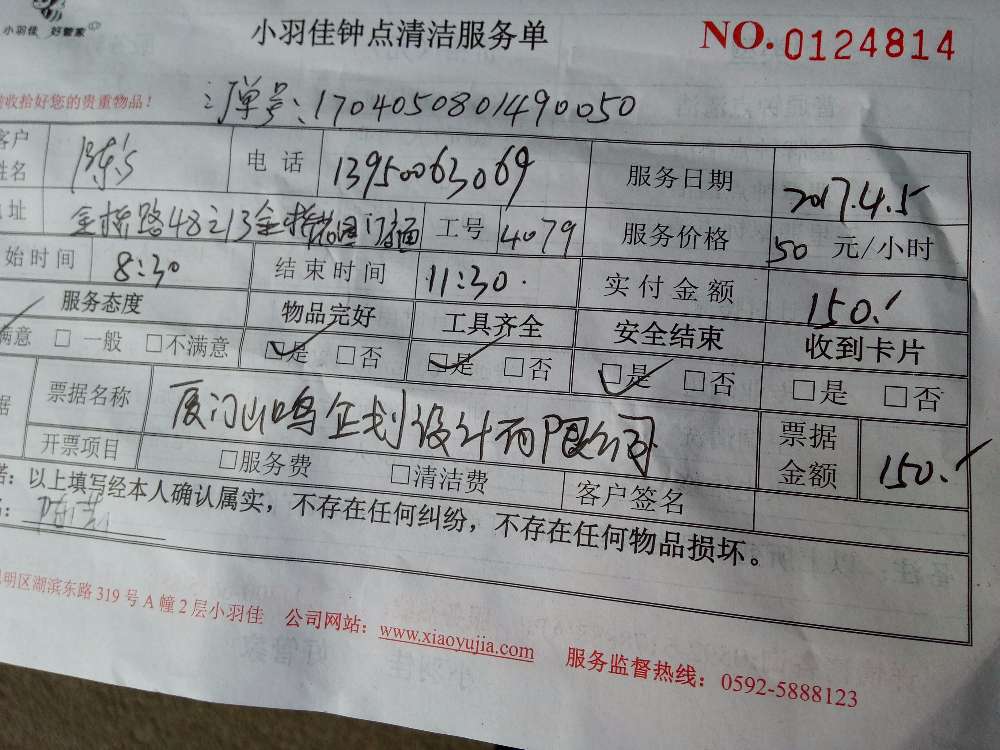 小羽佳 好管家
小羽佳钟点清洁服务单
NO.0124814
收拾好您的贵重物品！
单号：1704050801490050
客户姓名 陈 电话 13950063069 服务日期 2017.4.5
地址 金桥路48之13金桥花园 工号 4079 服务价格 50 元/小时
始时间 8:30 结束时间 11:30. 实付金额 150.
服务态度 物品完好 工具齐全 安全结束 收到卡片
满意 □一般 □不满意 □是 □否 □是 □否 □是 □否 □是 □否
据 票据名称 厦门山鸣企划设计有限公司 票据金额 150.
开票项目 □服务费 □清洁费 客户签名
诺：以上填写经本人确认属实，不存在任何纠纷，不存在任何物品损坏。
明区湖滨东路319号A幢2层小羽佳 公司网站：www.xiaoyujia.com 服务监督热线：0592-5888123